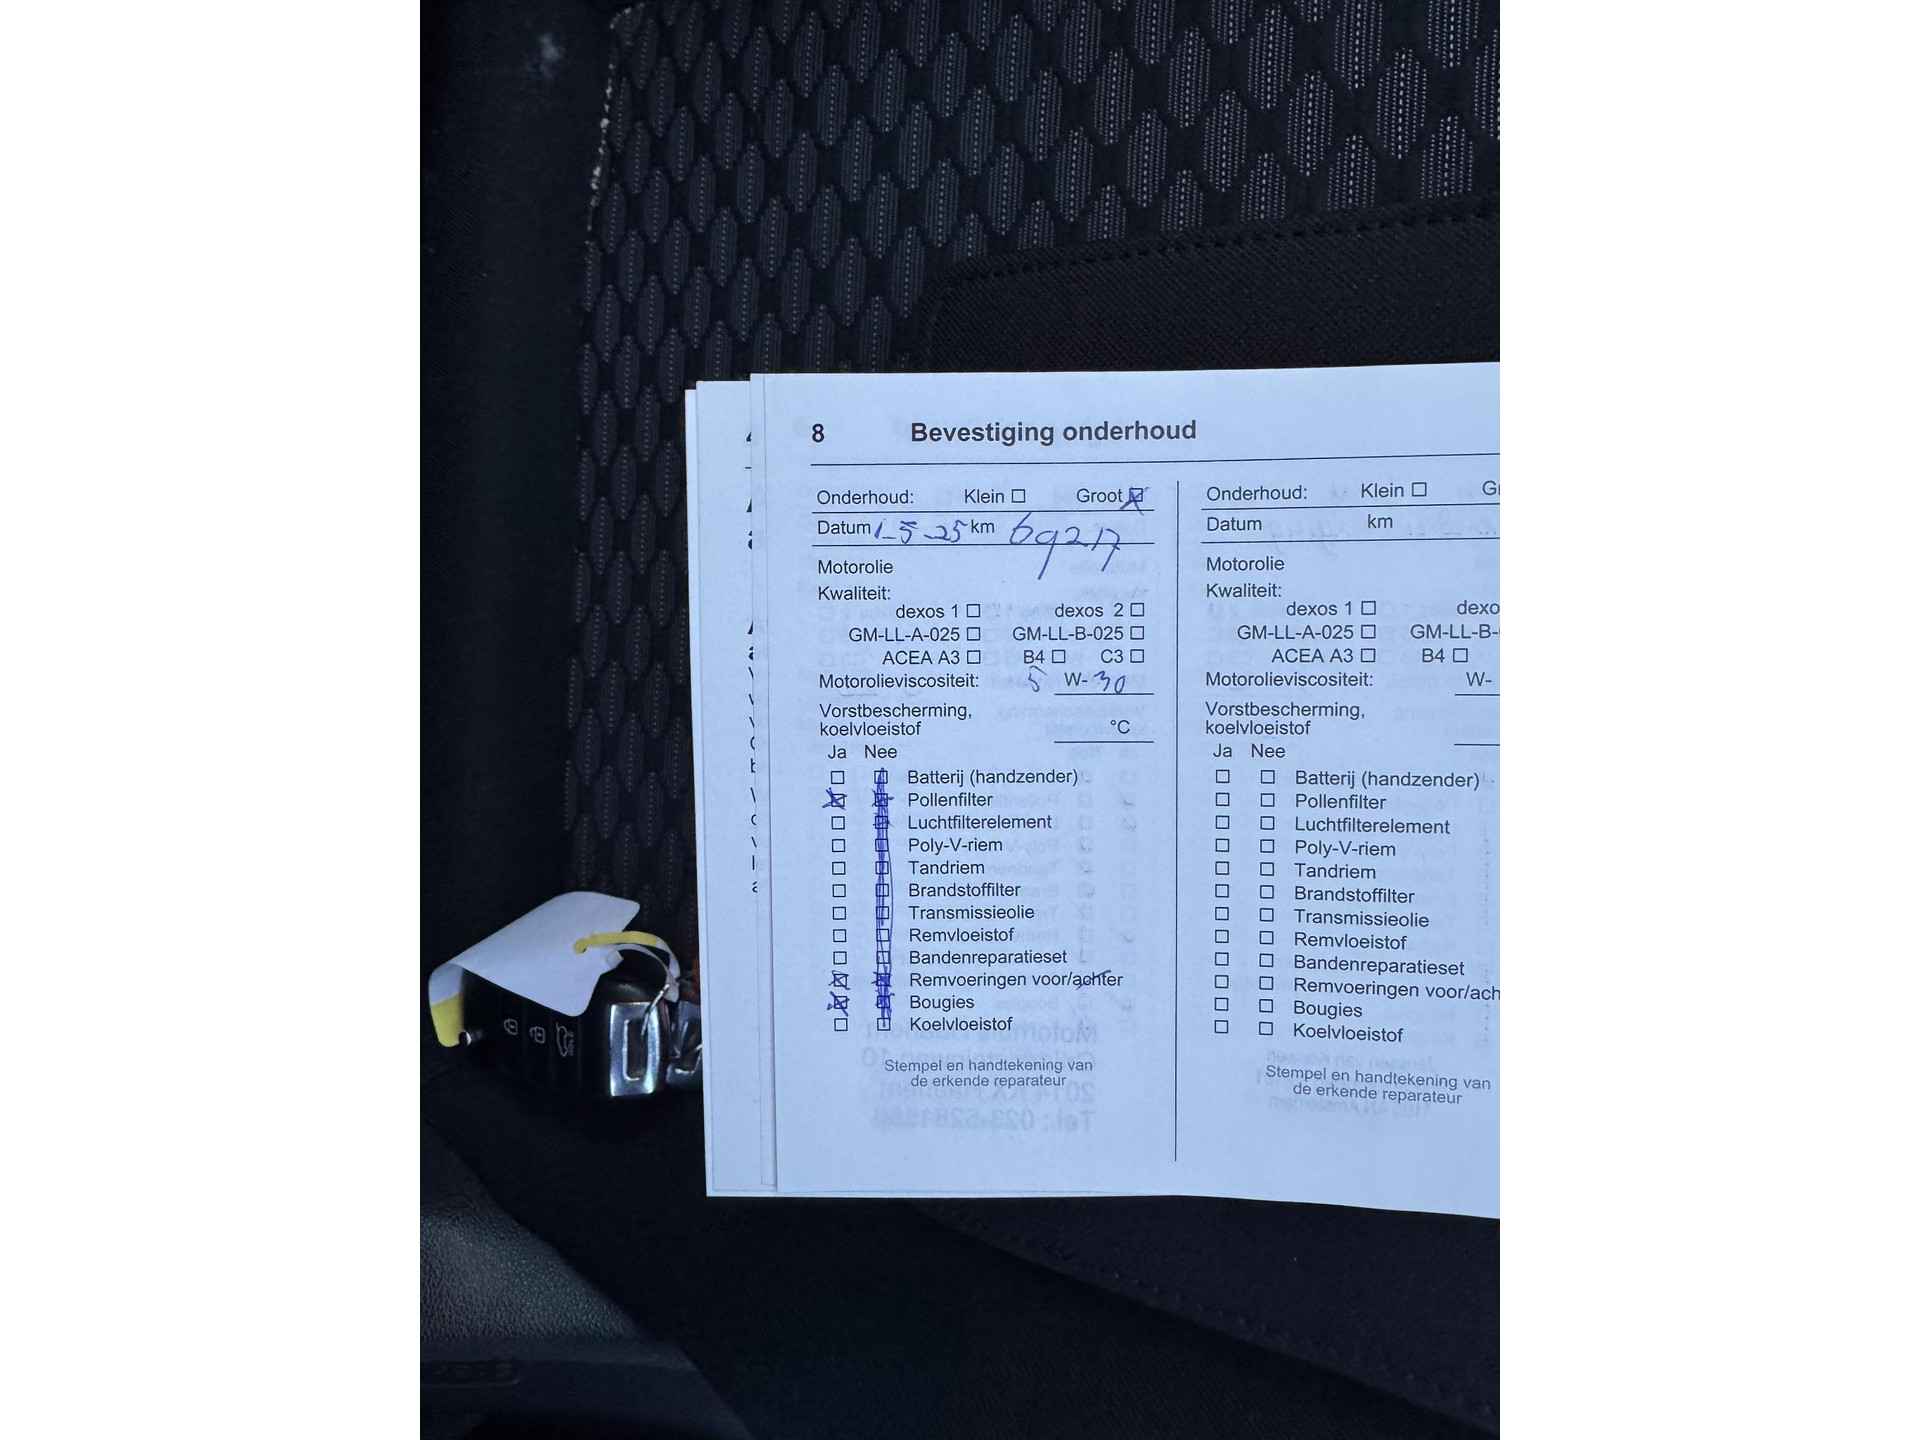 8 Bevestiging onderhoud
Onderhoud: Klein Groot
Datum 1-5-25 km 69217
Motorolie
Kwaliteit:
dexos 1 dexos 2
GM-LL-A-025 GM-LL-B-025
ACEA A3 B4 C3
Motorolieviscositeit: 5 W- 30
Vorstbescherming,
koelvloeistof °C
Ja Nee
Batterij (handzender)
Pollenfilter
Luchtfilterelement
Poly-V-riem
Tandriem
Brandstoffilter
Transmissieolie
Remvloeistof
Bandenreparatieset
Remvoeringen voor/achter
Bougies
Koelvloeistof
Stempel en handtekening van
de erkende reparateur
Onderhoud: Klein
Datum km
Motorolie
Kwaliteit:
dexos 1 dexo
GM-LL-A-025 GM-LL-B-
ACEA A3 B4
Motorolieviscositeit: W-
Vorstbescherming,
koelvloeistof
Ja Nee
Batterij (handzender)
Pollenfilter
Luchtfilterelement
Poly-V-riem
Tandriem
Brandstoffilter
Transmissieolie
Remvloeistof
Bandenreparatieset
Remvoeringen voor/ach
Bougies
Koelvloeistof
Stempel en handtekening van
de erkende reparateur